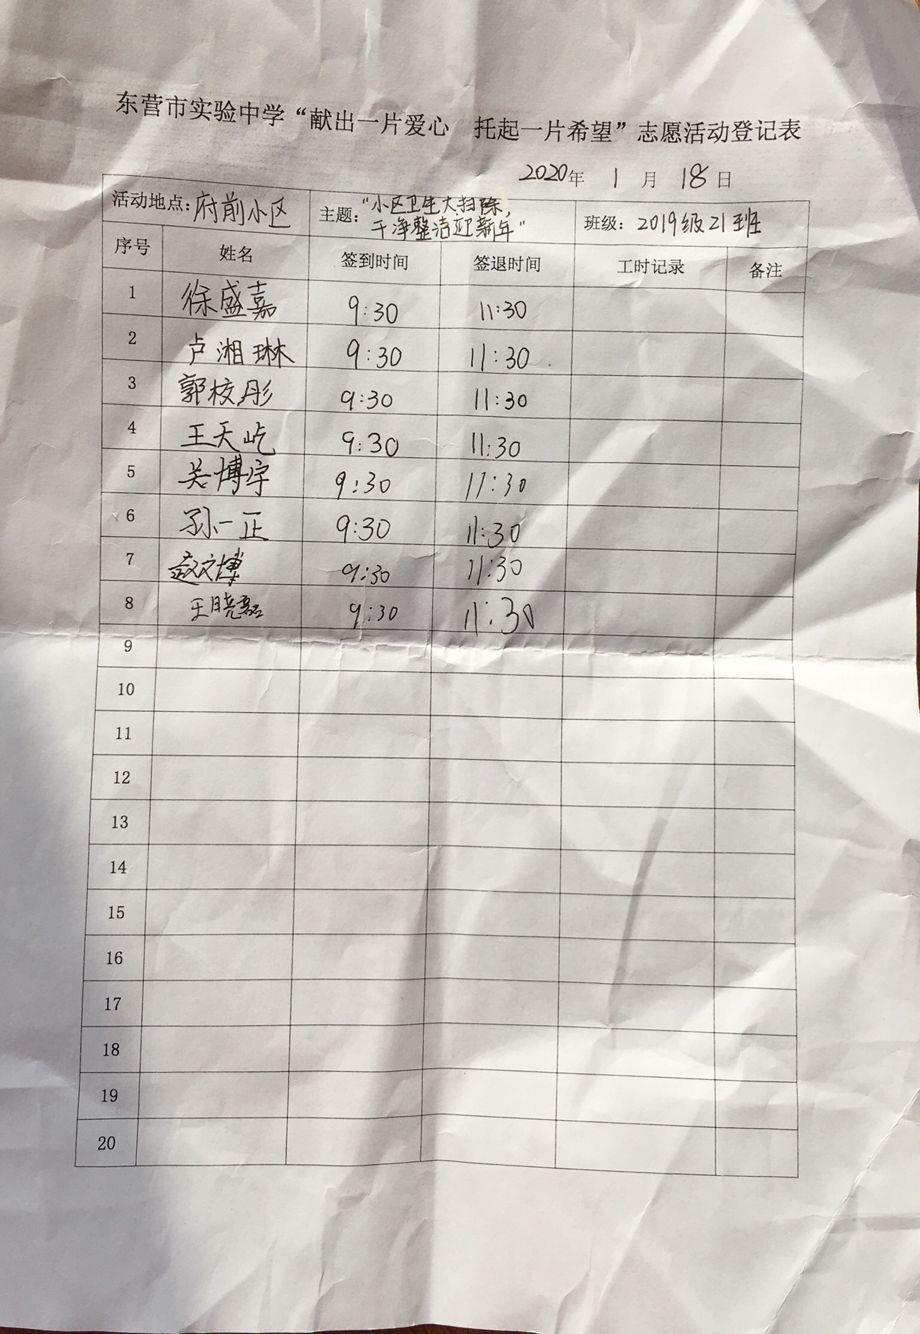 东营市实验中学“献出一片爱心　托起一片希望”志愿活动登记表
2020年 1 月 18 日
活动地点：府前小区 主题：“小区卫生大扫除，干净整洁迎新年” 班级：2019级21班
序号 姓名 签到时间 签退时间 工时记录 备注
1 徐盛嘉 9:30 11:30
2 卢湘琳 9:30 11:30
3 郭校彤 9:30 11:30
4 王天屹 9:30 11:30
5 关博宇 9:30 11:30
6 孙一正 9:30 11:30
7 赵文博 9:30 11:30
8 王晓磊 9:30 11:30
9
10
11
12
13
14
15
16
17
18
19
20